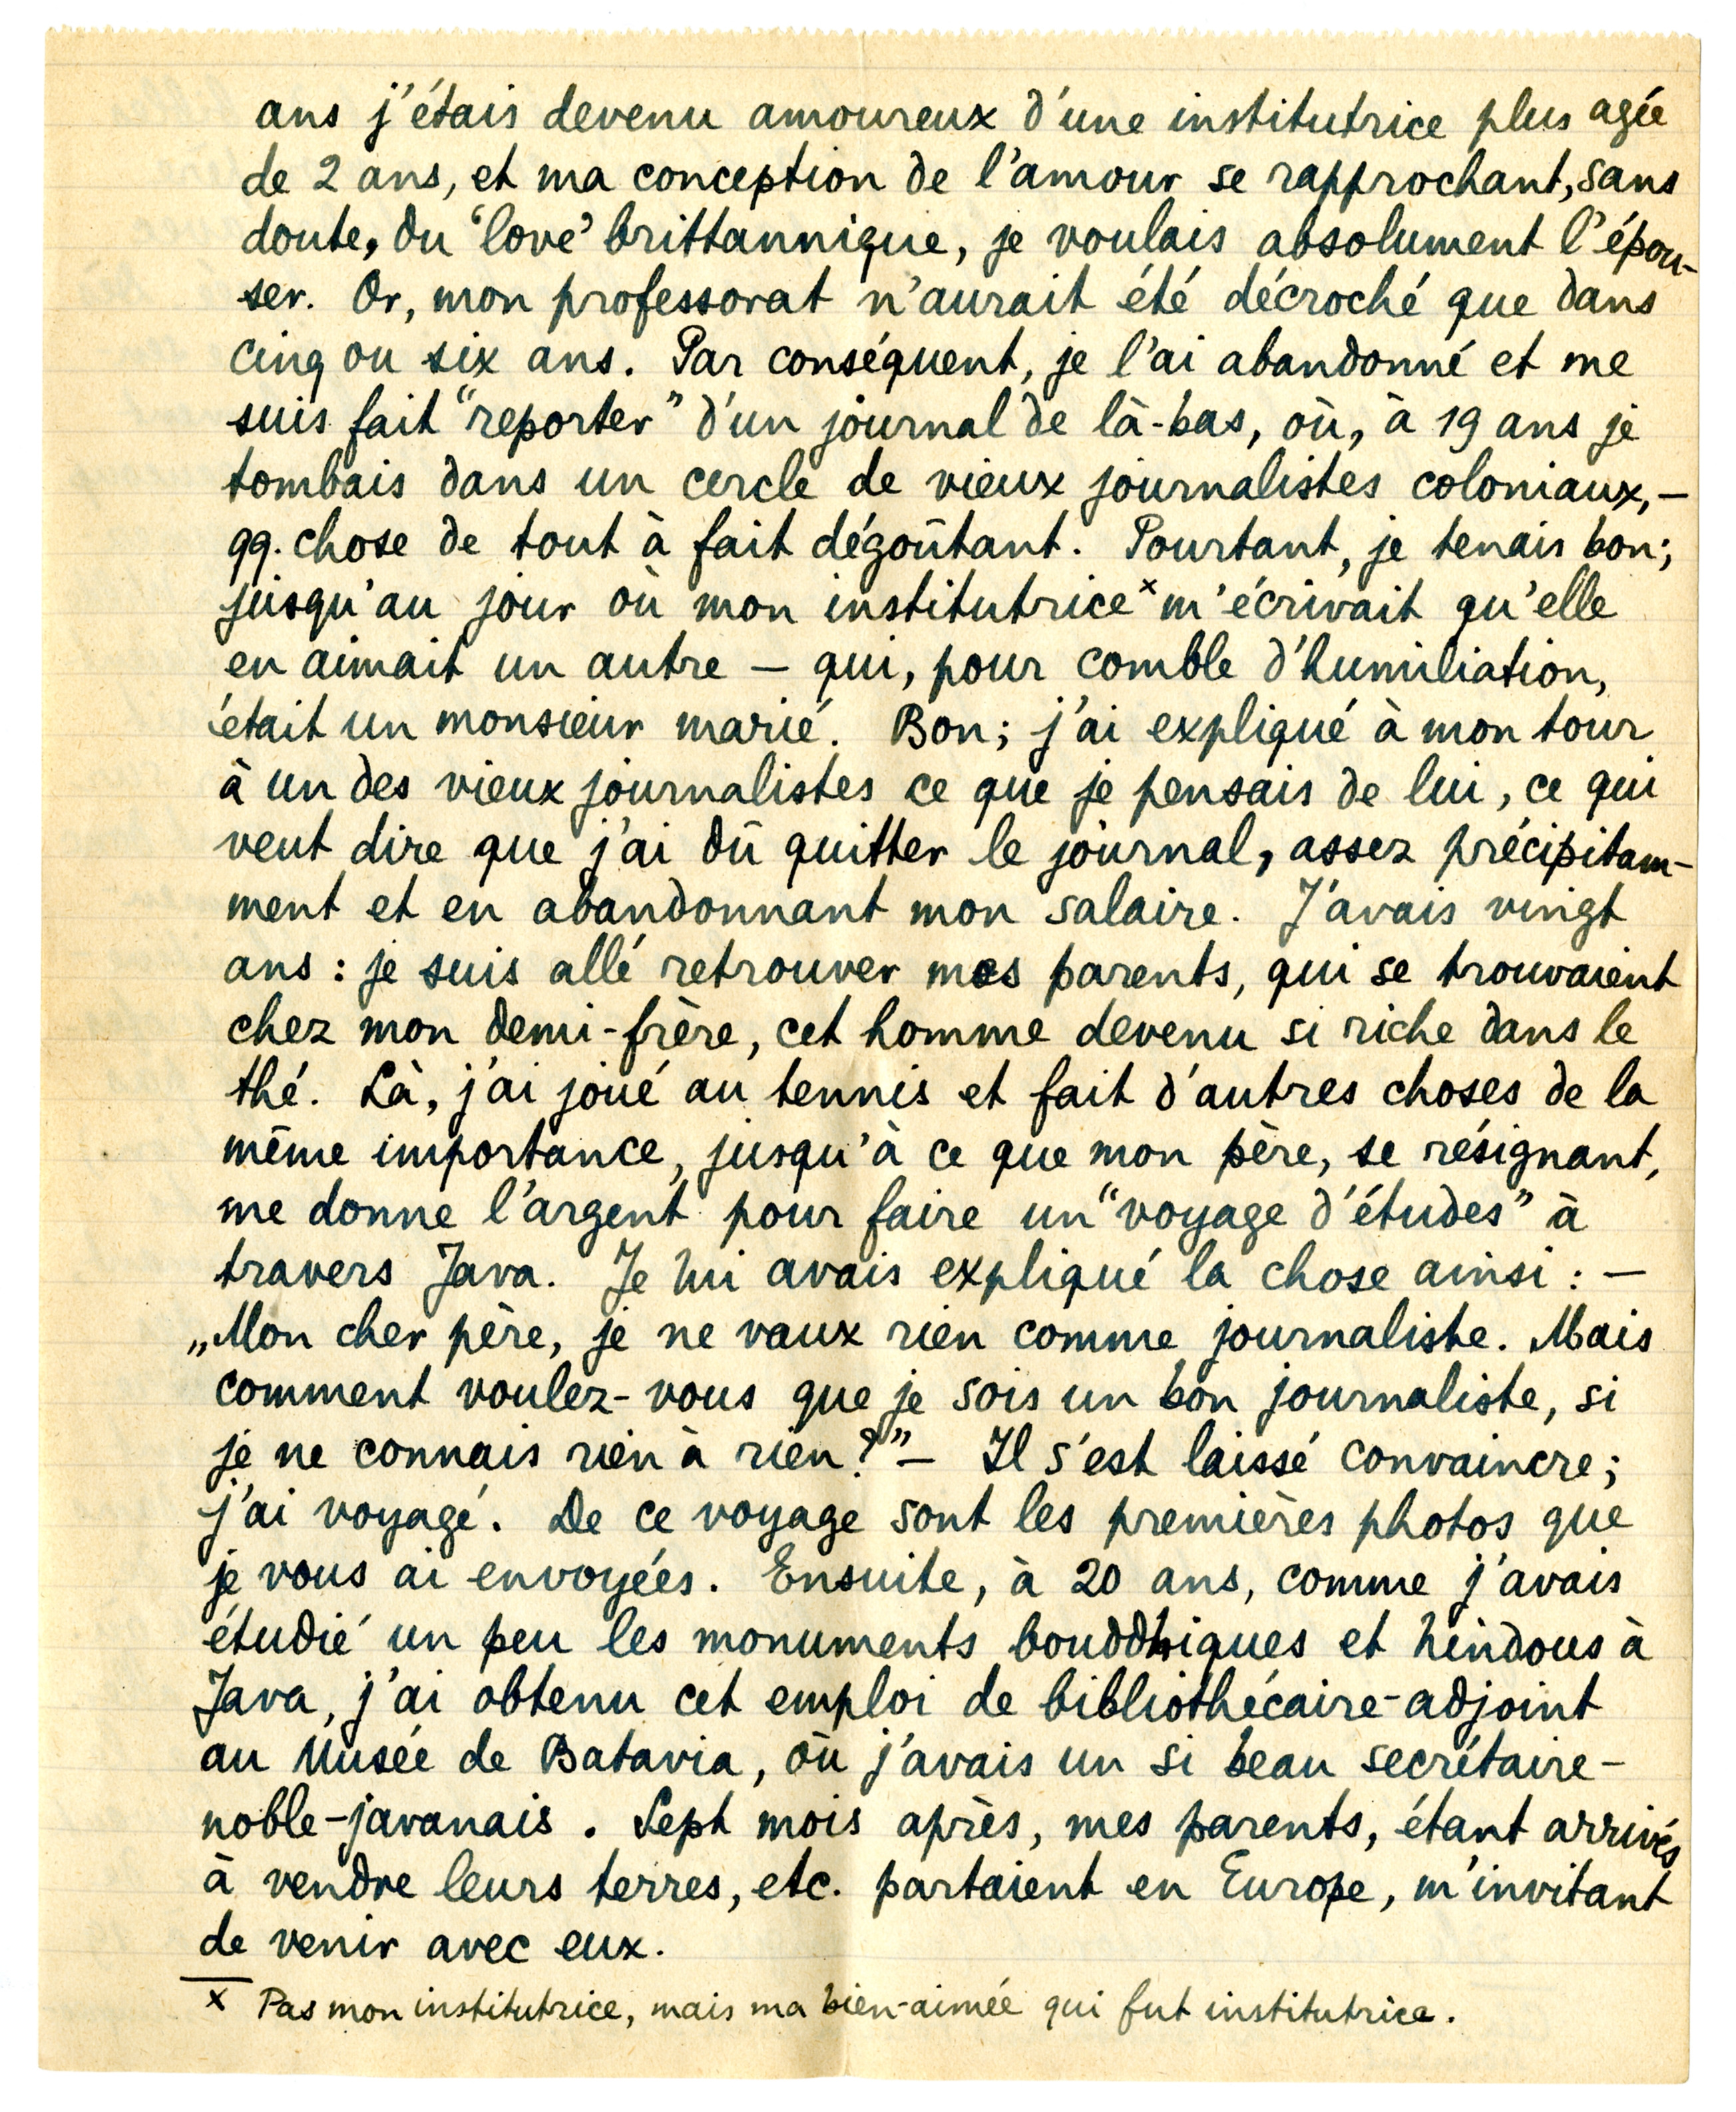 ans j'étais devenu amoureux d'une institutrice plus agée
de 2 ans, et ma conception de l'amour se rapprochant, sans
doute, du ‘love’ brittannique, je voulais absolument l'épou-
ser. Or, mon professorat n'aurait été décroché que dans
cinq ou six ans. Par conséquent, je l'ai abandonné et me
suis fait “reporter” d'un journal de là-bas, où, à 19 ans je
tombais dans un cercle de vieux journalistes coloniaux, —
qq. chose de tout à fait dégoûtant. Pourtant, je tenais bon;
jusqu'au jour où mon institutrice x m'écrivait qu'elle
en aimait un autre — qui, pour comble d'humiliation,
était un monsieur marié. Bon; j'ai expliqué à mon tour
à un des vieux journalistes ce que je pensais de lui, ce qui
veut dire que j'ai dû quitter le journal, assez précipitam-
ment et en abandonnant mon salaire. J'avais vingt
ans : je suis allé retrouver mes parents, qui se trouvaient
chez mon demi-frère, cet homme devenu si riche dans le
thé. Là, j'ai joué au tennis et fait d'autres choses de la
même importance, jusqu'à ce que mon père, se résignant,
me donne l'argent pour faire un “voyage d'études” à
travers Java. Je lui avais expliqué la chose ainsi : —
„Mon cher père, je ne vaux rien comme journaliste. Mais
comment voulez-vous que je sois un bon journaliste, si
je ne connais rien à rien?” — Il s'est laissé convaincre;
j'ai voyagé. De ce voyage sont les premières photos que
je vous ai envoyées. Ensuite, à 20 ans, comme j'avais
étudié un peu les monuments bouddhiques et hindous à
Java, j'ai obtenu cet emploi de bibliothécaire-adjoint
au Musée de Batavia, où j'avais un si beau secrétaire-
noble-javanais. Sept mois après, mes parents, étant arrivés
à vendre leurs terres, etc. partaient en Europe, m'invitant
de venir avec eux.
x Pas mon institutrice, mais ma bien-aimée qui fut institutrice.